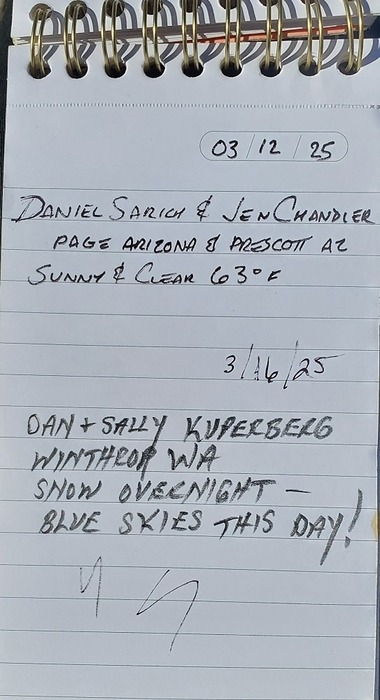 03/12/25
DANIEL SARICH & JEN CHANDLER
PAGE ARIZONA & PRESCOTT AZ
SUNNY & CLEAR 63°F
3/16/25
DAN + SALLY KUPERBERG
WINTHROP WA
SNOW OVERNIGHT —
BLUE SKIES THIS DAY!